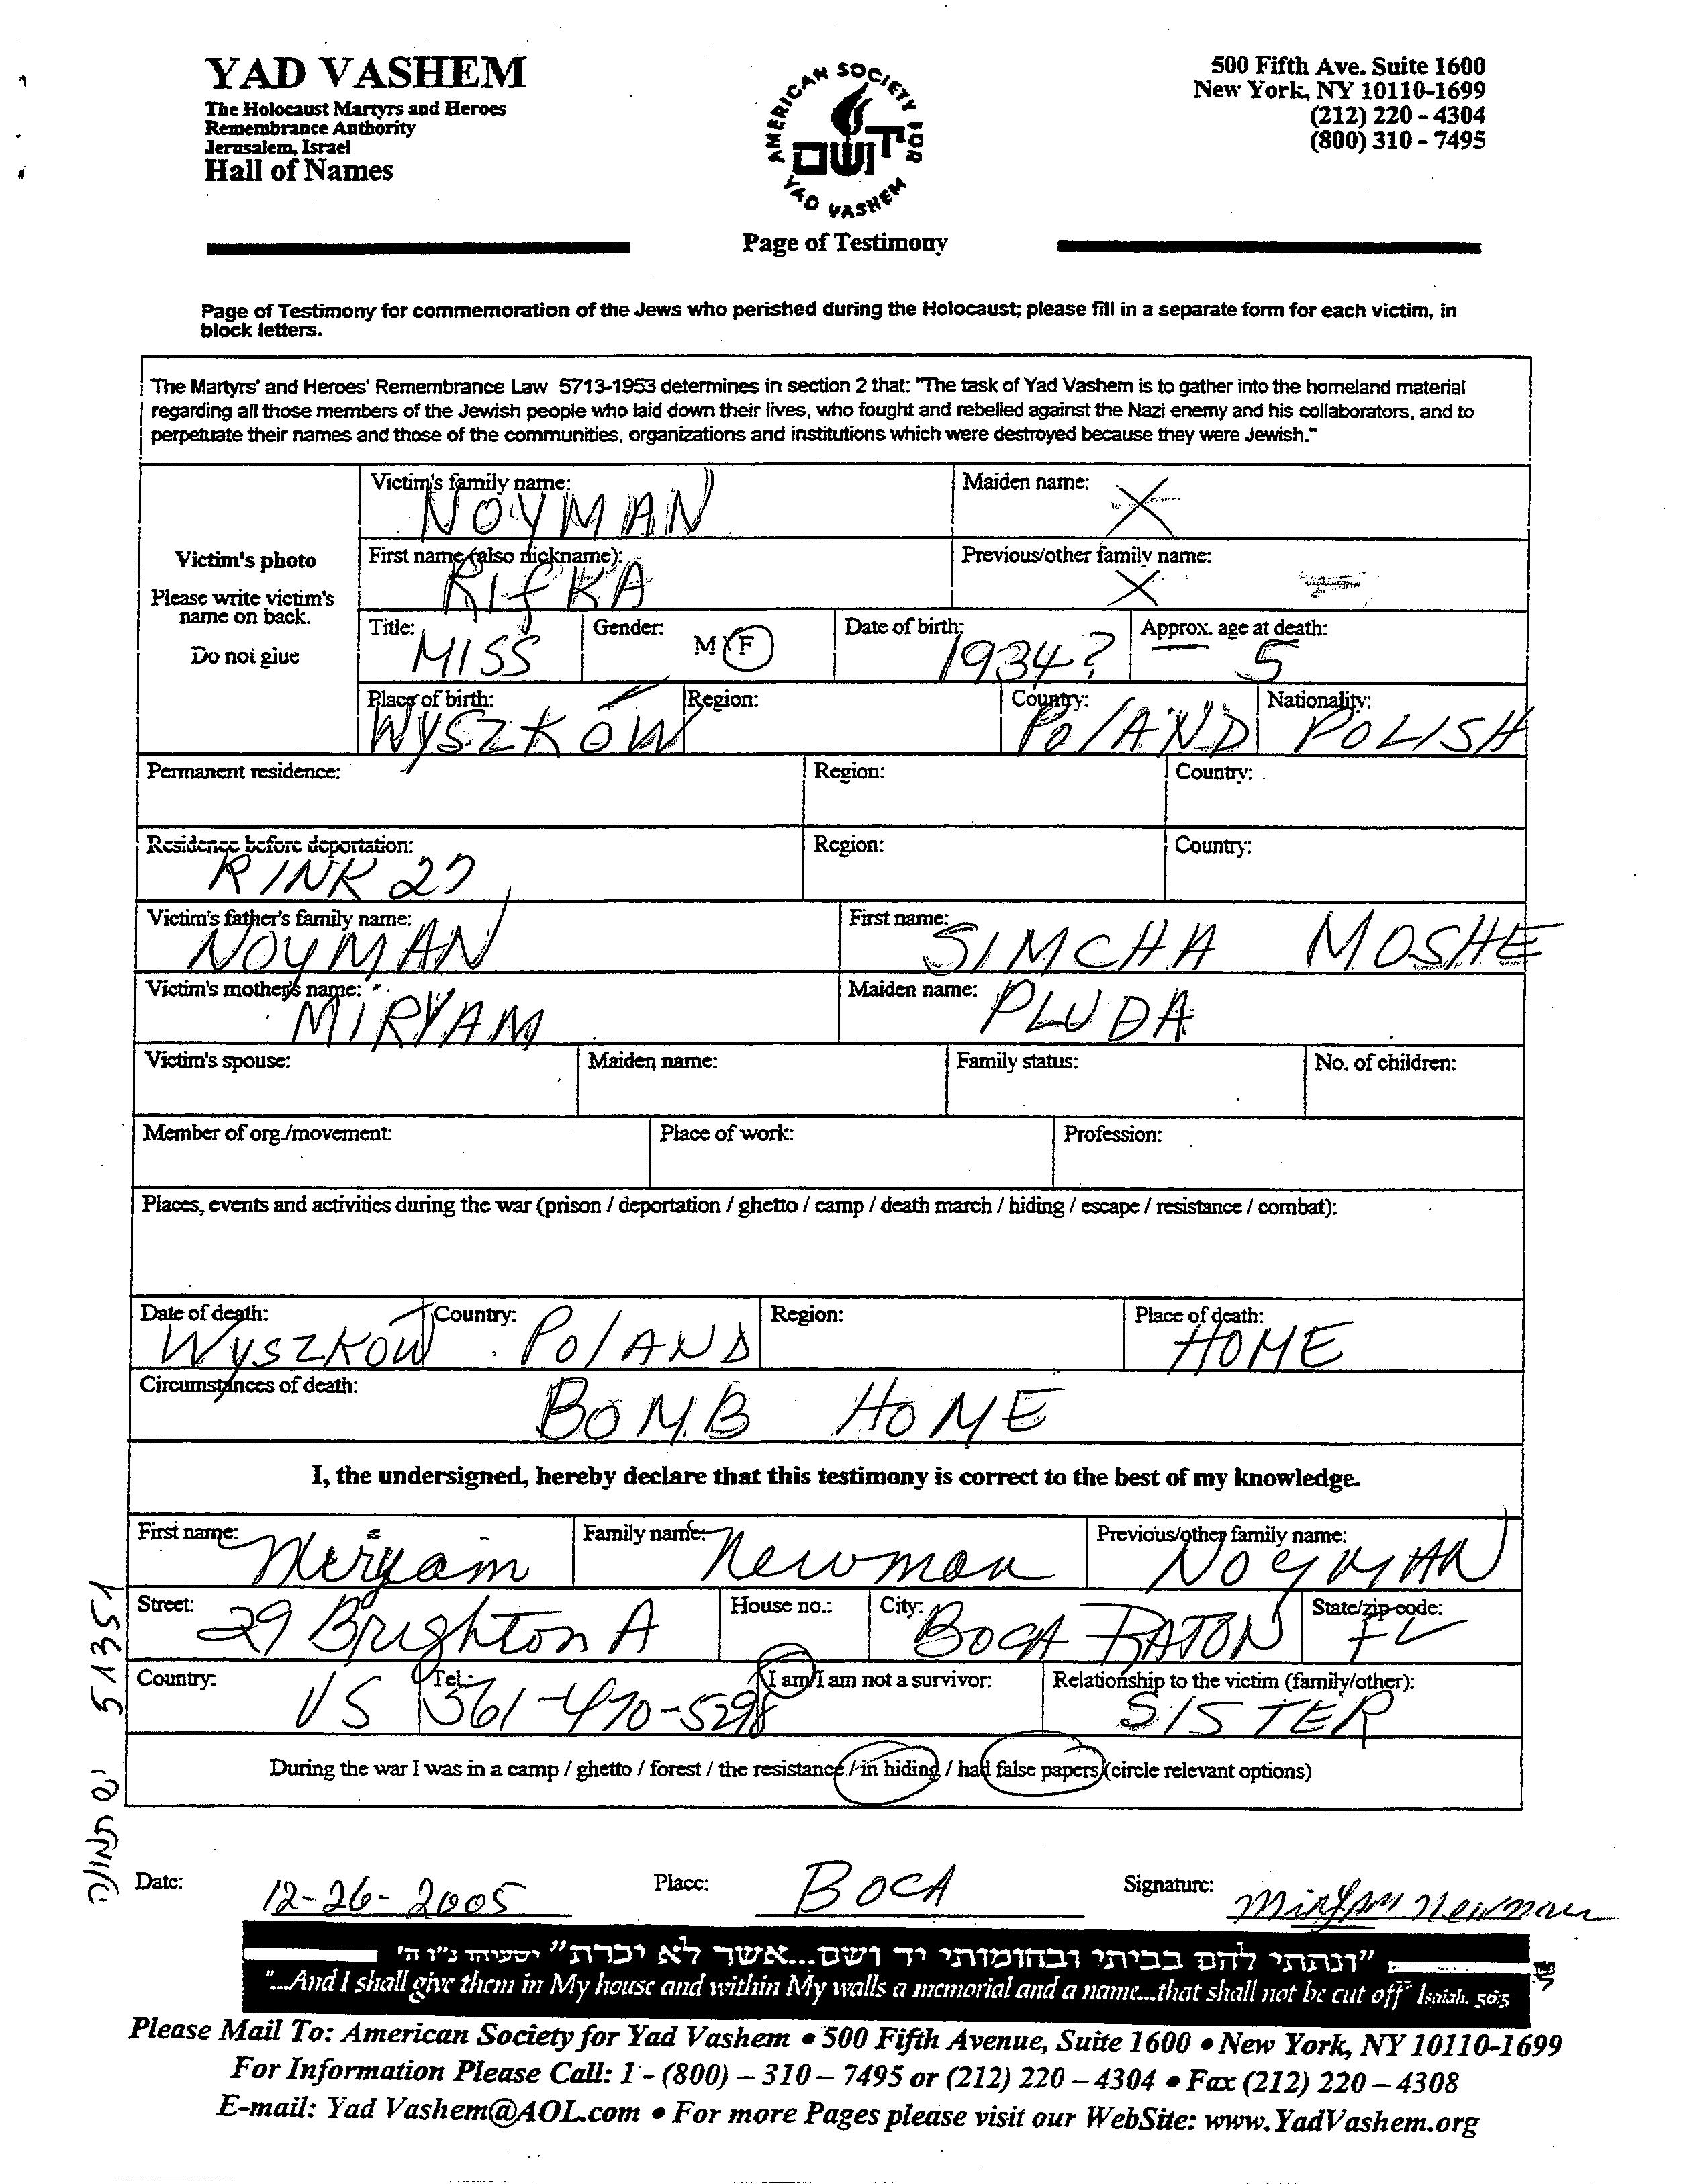 YAD VASHEM
The Holocaust Martyrs and Heroes
Remembrance Authority
Jerusalem, Israel
Hall of Names
AMERICAN SOCIETY FOR YAD VASHEM
יד ושם
Page of Testimony
500 Fifth Ave. Suite 1600
New York, NY 10110-1699
(212) 220 – 4304
(800) 310 – 7495
Page of Testimony for commemoration of the Jews who perished during the Holocaust; please fill in a separate form for each victim, in
block letters.
The Martyrs' and Heroes' Remembrance Law 5713-1953 determines in section 2 that: "The task of Yad Vashem is to gather into the homeland material
regarding all those members of the Jewish people who laid down their lives, who fought and rebelled against the Nazi enemy and his collaborators, and to
perpetuate their names and those of the communities, organizations and institutions which were destroyed because they were Jewish."
Victim's photo
Please write victim's
name on back.
Do not glue
Victim's family name: NOYMAN
Maiden name: X
First name (also nickname): RIFKA
Previous/other family name: X
Title: MISS
Gender: M / F
Date of birth: 1934?
Approx. age at death: 5
Place of birth: WYSZKÓW
Region:
Country: POLAND
Nationality: POLISH
Permanent residence:
Region:
Country:
Residence before deportation: RINK 27
Region:
Country:
Victim's father's family name: NOYMAN
First name: SIMCHA MOSHE
Victim's mother's name: MIRYAM
Maiden name: PLUDA
Victim's spouse:
Maiden name:
Family status:
No. of children:
Member of org./movement:
Place of work:
Profession:
Places, events and activities during the war (prison / deportation / ghetto / camp / death march / hiding / escape / resistance / combat):
Date of death: WYSZKÓW
Country: POLAND
Region:
Place of death: HOME
Circumstances of death: BOMB HOME
I, the undersigned, hereby declare that this testimony is correct to the best of my knowledge.
First name: Miryam
Family name: Newman
Previous/other family name: NOYMAN
Street: 29 Brighton A
House no.:
City: BOCA RATON
State/zip code: FL
Country: US
Tel.: 561-470-5298
I am/I am not a survivor:
Relationship to the victim (family/other): SISTER
During the war I was in a camp / ghetto / forest / the resistance / in hiding / had false papers (circle relevant options)
יש תמונה 51351
Date: 12-26-2005
Place: BOCA
Signature: Miryam Newman
"ונתתי להם בביתי ובחומותי יד ושם...אשר לא יכרת" ישעיהו נ"ו ה'
"...And I shall give them in My house and within My walls a memorial and a name...that shall not be cut off" Isaiah. 56:5
Please Mail To: American Society for Yad Vashem • 500 Fifth Avenue, Suite 1600 • New York, NY 10110-1699
For Information Please Call: 1 - (800) – 310 – 7495 or (212) 220 – 4304 • Fax (212) 220 – 4308
E-mail: Yad Vashem@AOL.com • For more Pages please visit our WebSite: www.YadVashem.org